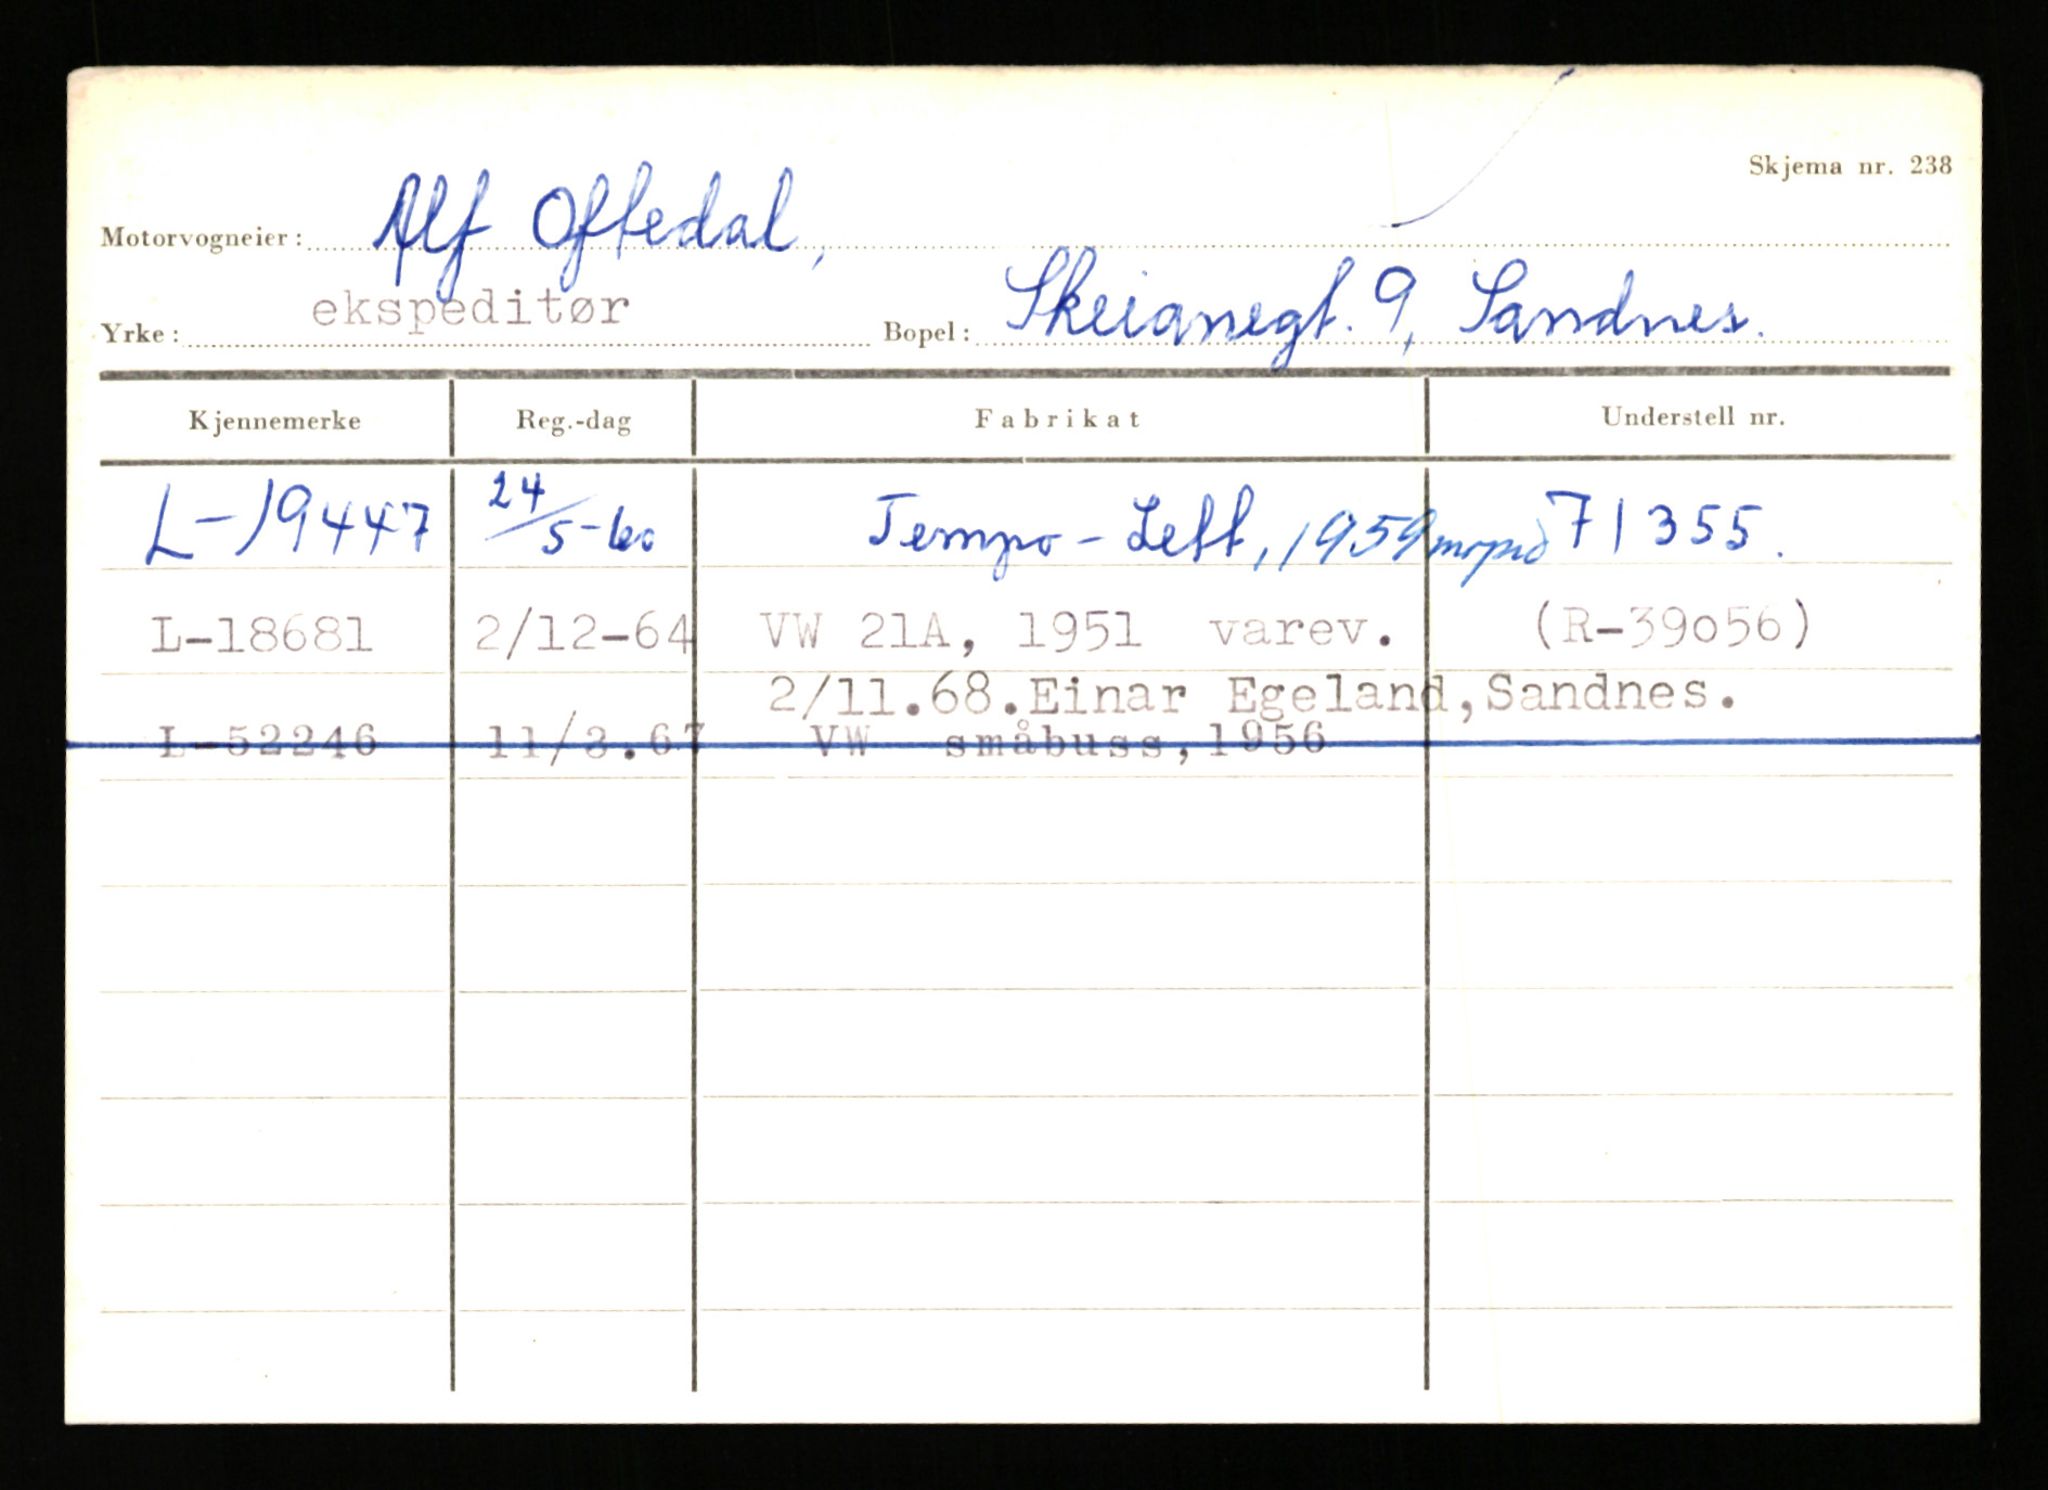 Skjema nr. 238
Motorvogneier: Alf Oftedal,
Yrke: ekspeditør Bopel: Skeianegt. 9, Sandnes.
Kjennemerke Reg.-dag Fabrikat Understell nr.
L-19447 24/5-60 Tempo-Lett, 1959 moped 71355.
L-18681 2/12-64 VW 21A, 1951 varev. (R-39056)
2/11.68.Einar Egeland,Sandnes.
L-52246 11/3.67 VW småbuss,1956